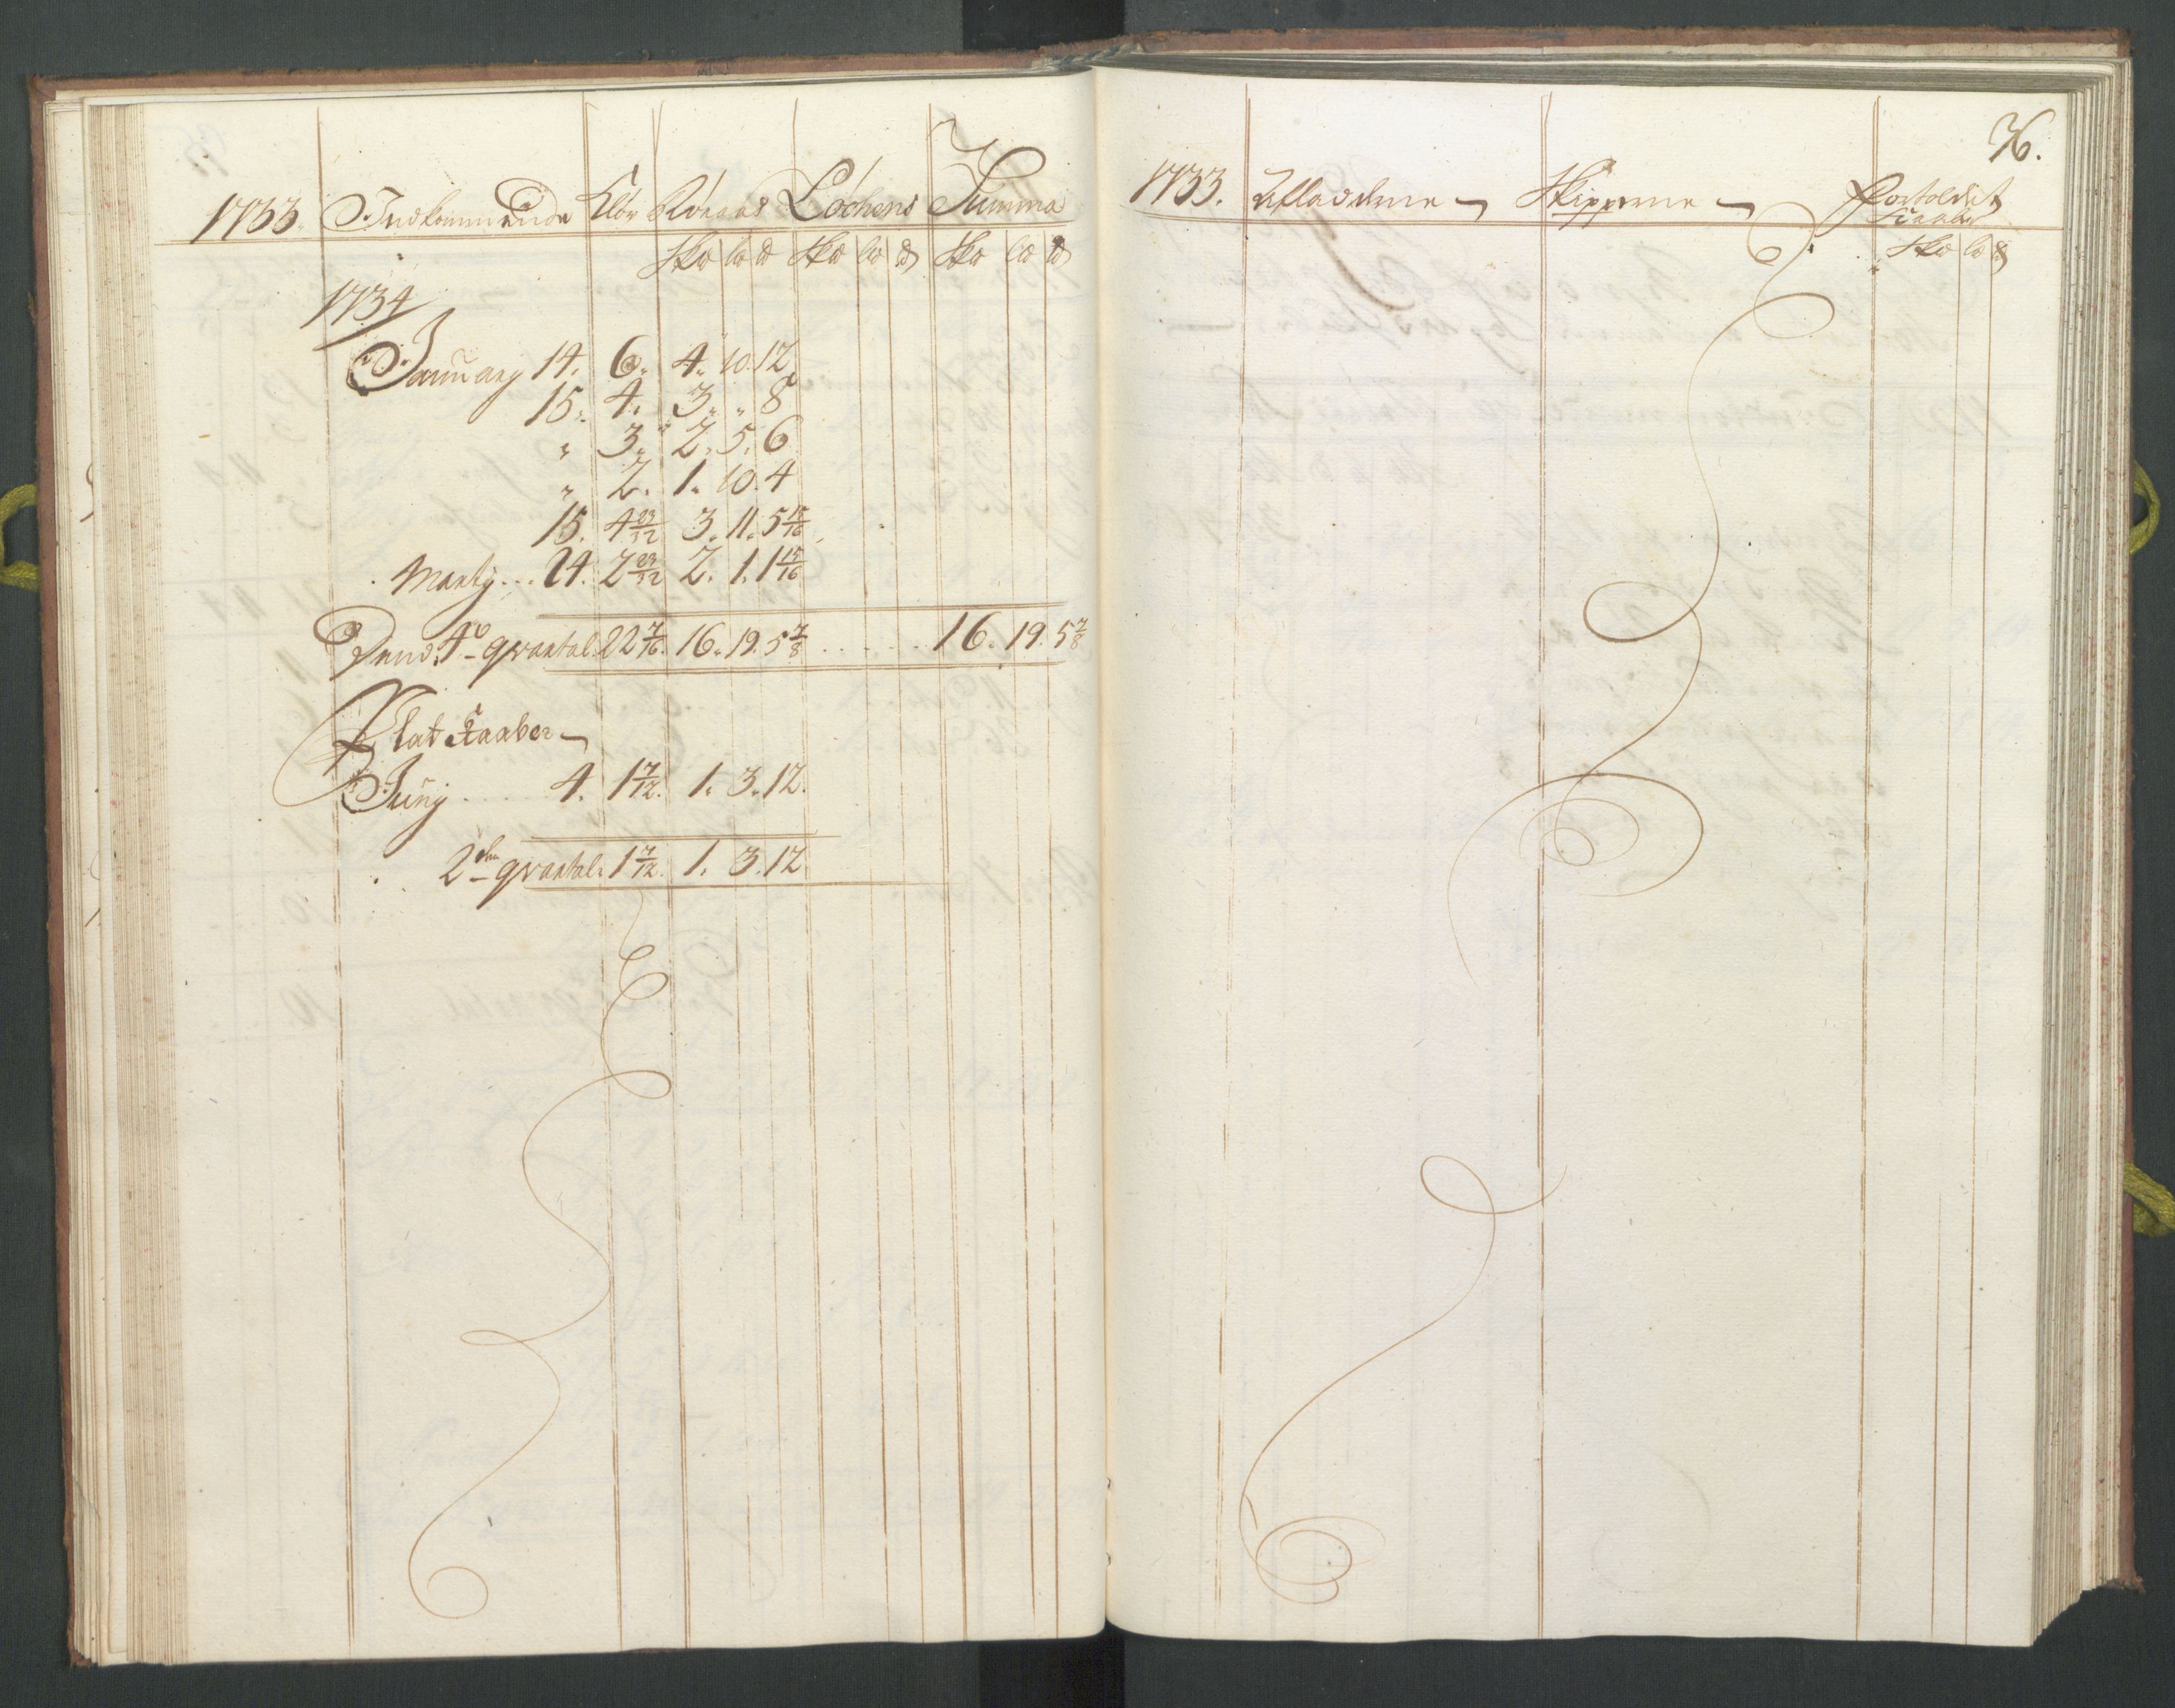 1733. Indkommende Clör Röraas Löchens Summa
Sk℔ l℔ ℔ Sk℔ l℔ ℔ Sk℔ l℔ ℔
1734
January 14. 6. 4. 10. 12
15. 4. 3. " 8
" 3. 2. 5. 6
" 2. 1. 10. 4
15. 4 29/32 3. 11. 5 15/16
Marty... 24. 2 29/32 2. 1. 1 15/16
4de qvartal. 22 7/16. 16. 19. 5 7/8 ...... 16. 19. 5 7/8
Plat Kaaber
Juny .... 4. 1 7/12. 1. 3. 12.
2den qvartal. 1 7/12. 1. 3. 12
76.
1733. Afladerne Skipperne Fortoldet Kaaber
Sk℔ l℔ ℔